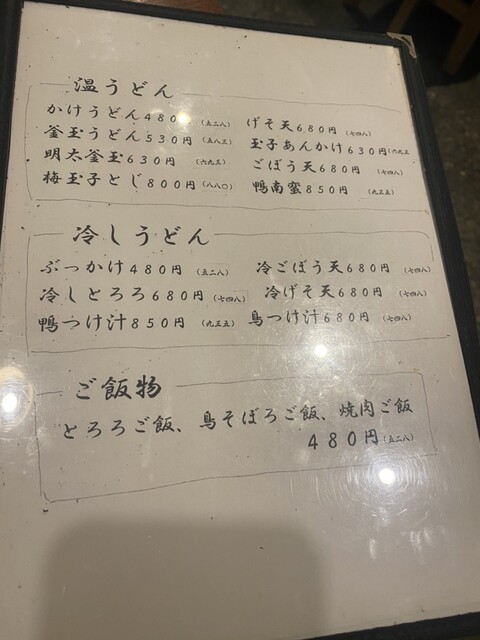 温うどん
かけうどん480 (五二八)
釜玉うどん530円 (五八三)
明太釜玉630円 (六九三)
梅玉子とじ800円 (八八〇)
げそ天680円 (七四八)
玉子あんかけ630円(六九三
ごぼう天680円 (七四八)
鴨南蛮850円 (九三五)
冷しうどん
ぶっかけ480円 (五二八)
冷しとろろ680円(七四八)
鴨つけ汁850円 (九三五)
冷ごぼう天680円 (七四八)
冷げそ天680円 (七四八)
鳥つけ汁680円 (七四八)
ご飯物
とろろご飯、鳥そぼろご飯、焼肉ご飯
480円(五二八)